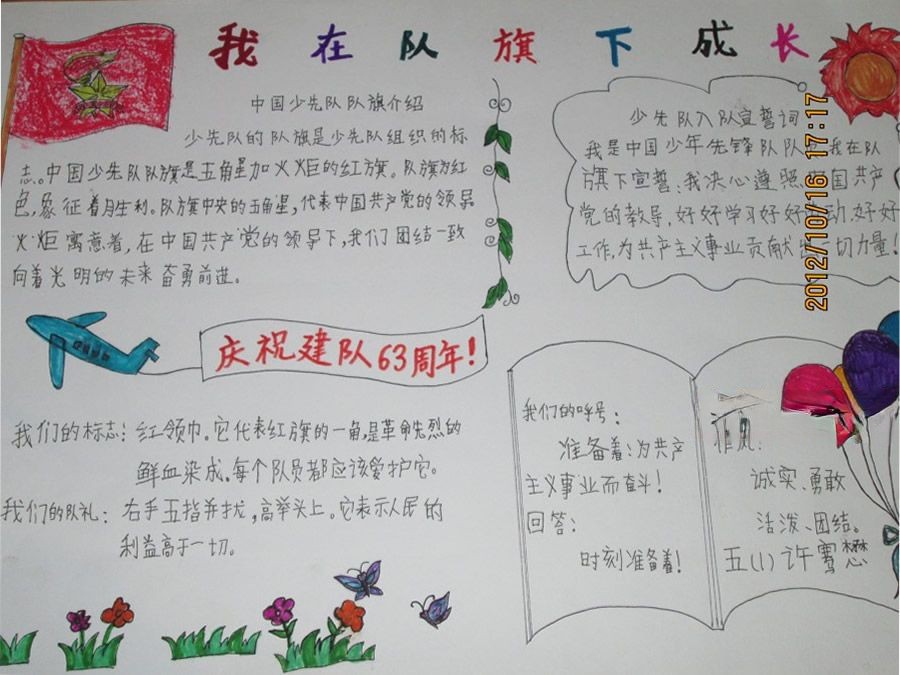 我在队旗下成长
中国少先队队旗介绍
少先队的队旗是少先队组织的标
志。中国少先队队旗是五角星加火炬的红旗。队旗为红
色,象征着胜利。队旗中央的五角星,代表中国共产党的领导
火炬寓意着,在中国共产党的领导下,我们团结一致
向着光明的未来奋勇前进。
少先队入队宣誓词
我是中国少年先锋队队 我在队
旗下宣誓:我决心遵照 国共产
党的教导,好好学习好好 动,好好
工作,为共产主义事业贡献出一切力量!
2012/10/16 17:17
庆祝建队63周年!
我们的标志:红领巾。它代表红旗的一角,是革命先烈的
鲜血染成。每个队员都应该爱护它。
我们的队礼:右手五指并拢,高举头上。它表示人民的
利益高于一切。
我们的呼号:
准备着:为共产
主义事业而奋斗!
回答:
时刻准备着!
作风:
诚实、勇敢
活泼、团结。
五(1)许